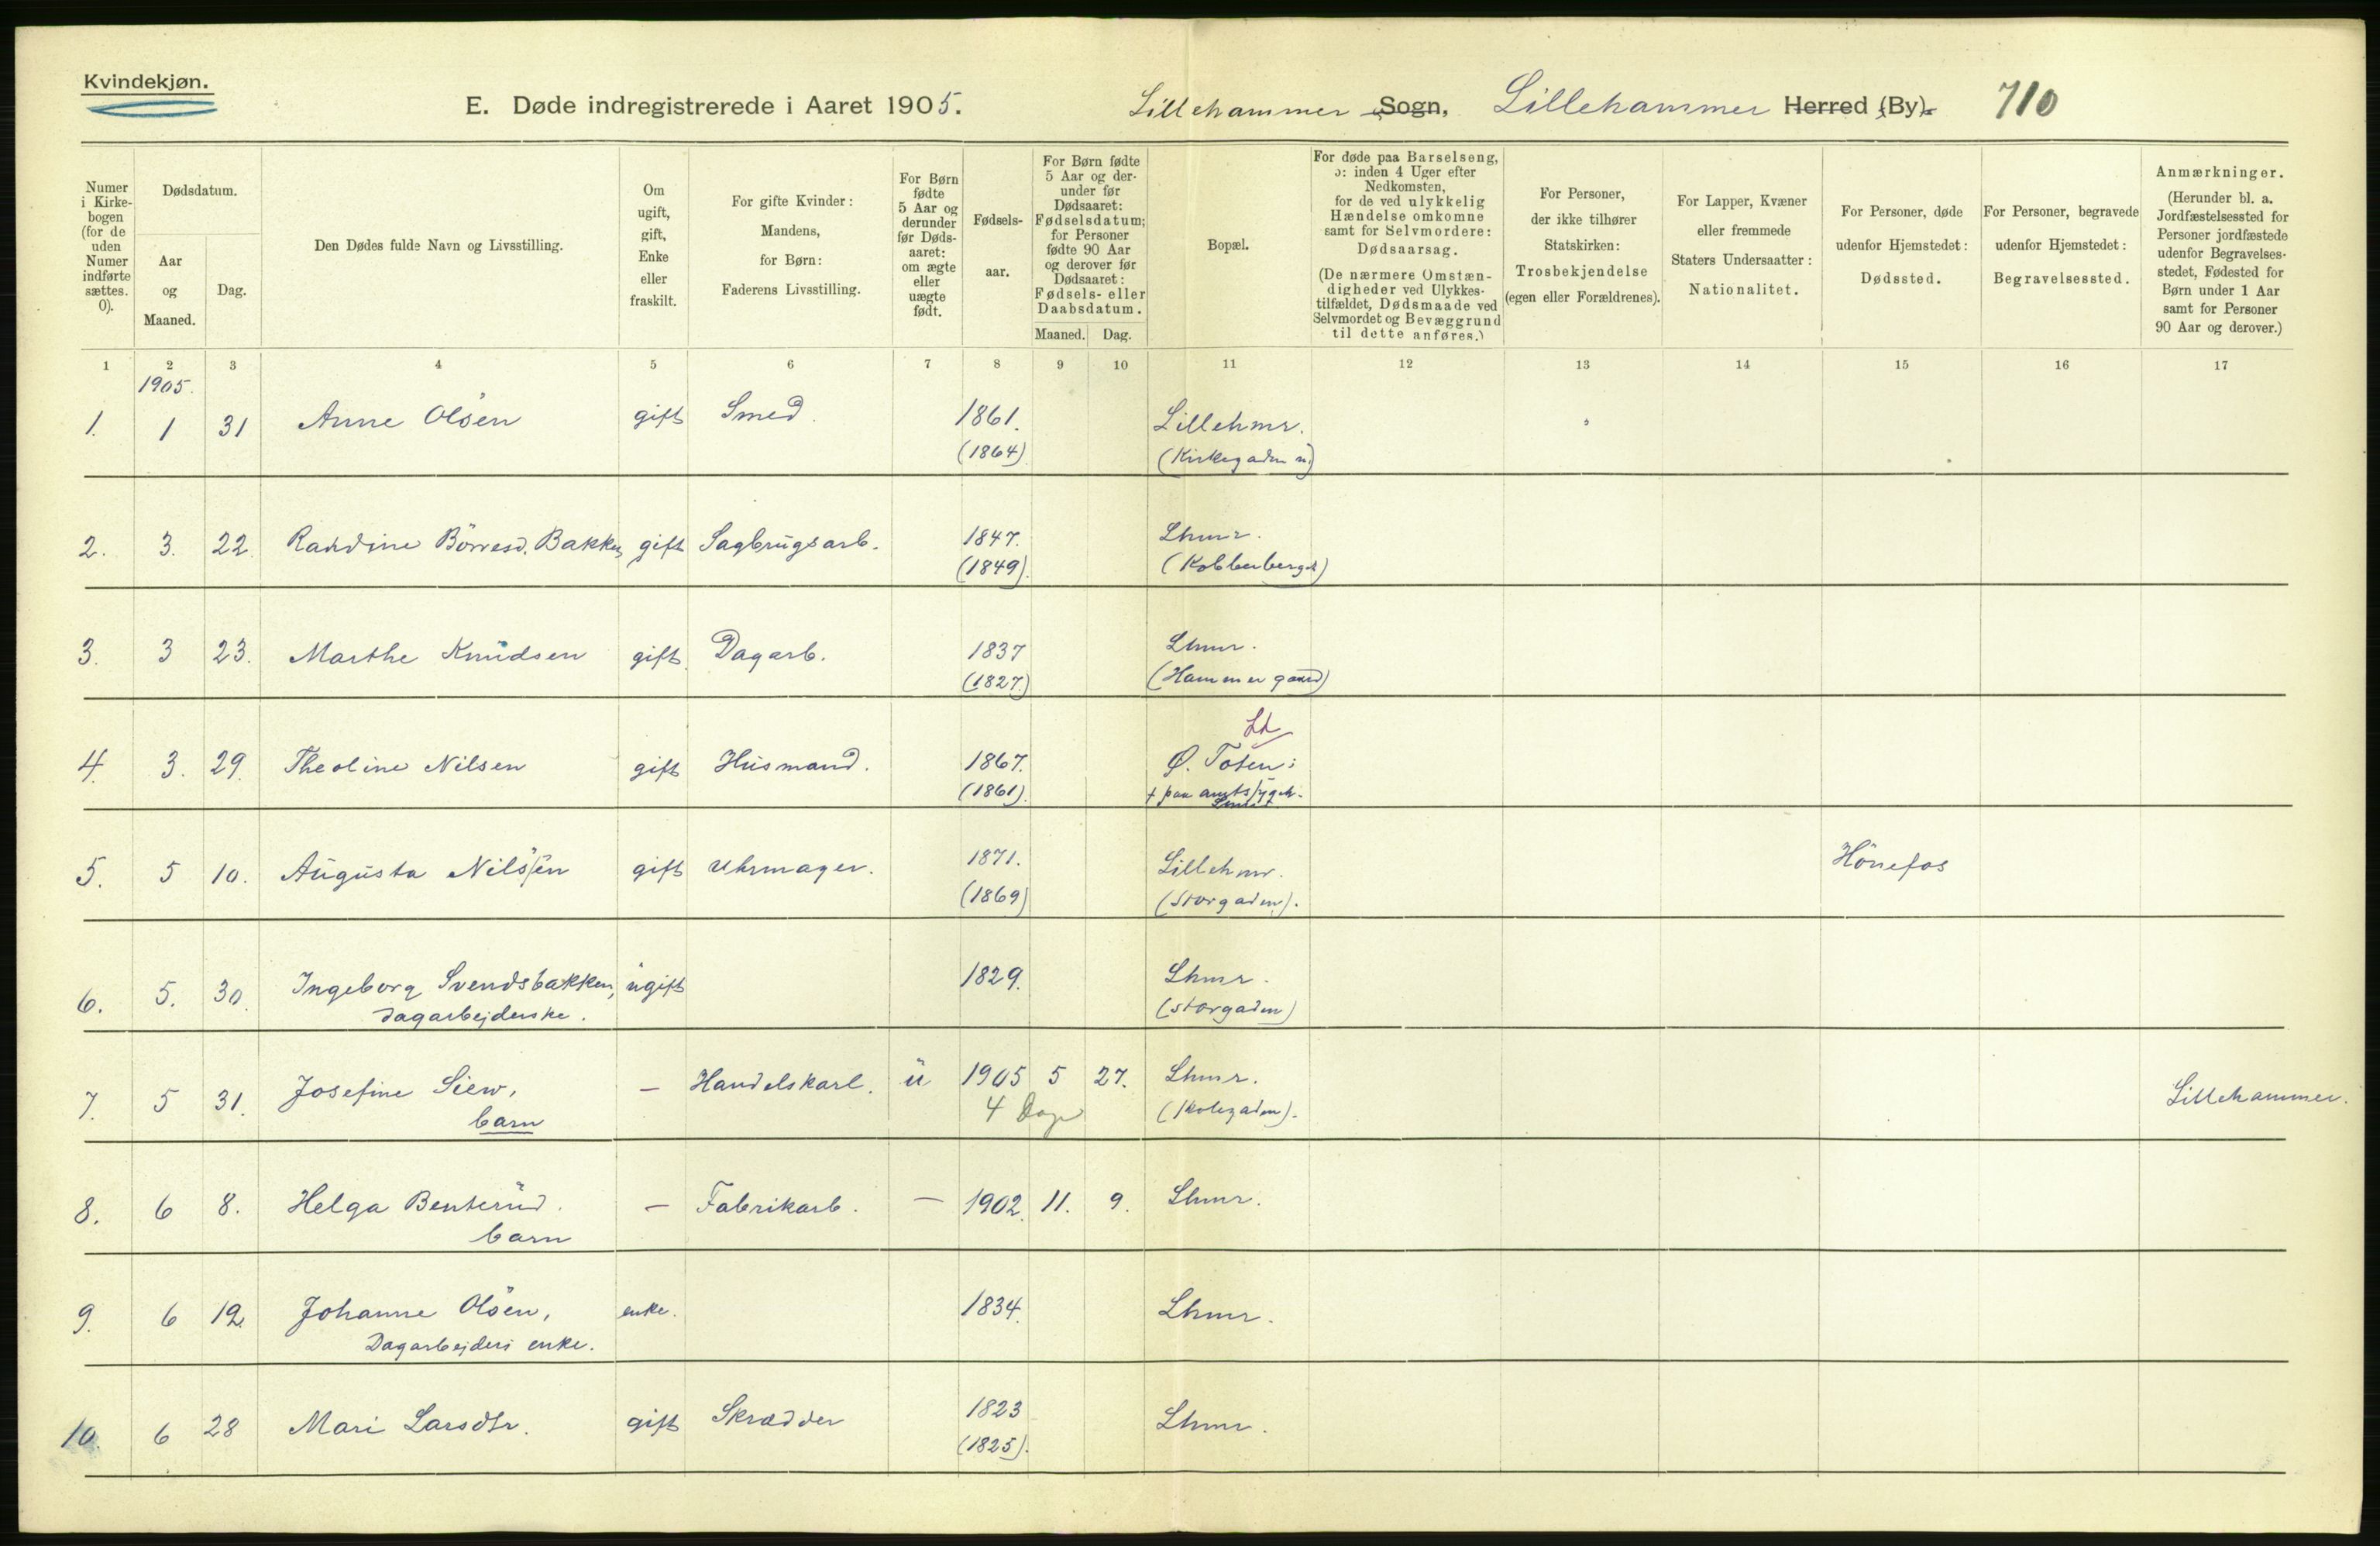 Kvindekjøn.
E. Døde indregistrerede i Aaret 1905. Lillehammer Sogn, Lillehammer Herred (By). 710
Numer i Kirkebogen (for de uden Numer indførte sættes 0).
Dødsdatum.
Aar og Maaned.
Dag.
Den Dødes fulde Navn og Livsstilling.
Om ugift, gift, Enke eller fraskilt.
For gifte Kvinder: Mandens, for Børn: Faderens Livsstilling.
For Børn fødte 5 Aar og derunder før Dødsaaret: om ægte eller uægte født.
Fødselsaar.
For Børn fødte 5 Aar og derunder før Dødsaaret: Fødselsdatum; for Personer fødte 90 Aar og derover før Dødsaaret: Fødsels- eller Daabsdatum.
Maaned. Dag.
Bopæl.
For døde paa Barselseng, ɔ: inden 4 Uger efter Nedkomsten, for de ved ulykkelig Hændelse omkomne samt for Selvmordere: Dødsaarsag.
(De nærmere Omstændigheder ved Ulykkestilfældet, Dødsmaade ved Selvmordet og Bevæggrund til dette anføres.)
For Personer, der ikke tilhører Statskirken: Trosbekjendelse (egen eller Forældrenes).
For Lapper, Kvæner eller fremmede Staters Undersaatter: Nationalitet.
For Personer, døde udenfor Hjemstedet: Dødssted.
For Personer, begravede udenfor Hjemstedet: Begravelsessted.
Anmærkninger.
(Herunder bl. a. Jordfæstelsessted for Personer jordfæstede udenfor Begravelsesstedet, Fødested for Børn under 1 Aar samt for Personer 90 Aar og derover.)
1 2 3 4 5 6 7 8 9 10 11 12 13 14 15 16 17
1905.
1. 1 31 Anne Olsen gift Smed. 1861. Lillehmr.
(1864) (Kirkegaden n.)
2. 3. 22. Randine Börresd. Bakken gift Sagbrugsarb. 1847. Lhmr.
(1849). (Kobberberget)
3. 3 23. Marthe Knudsen gift. Dagarb. 1837 Lhmr.
(1827.) (Hammergaard)
Ld
4. 3. 29. Theoline Nilsen gift Husmand. 1867. Ø. Toten:
(1861). + paa amtssygeh.
5. 5 10. Augusta Nilssen gift Uhrmager. 1871. Lillehmr. Hönefos
(1869) (Storgaden).
6. 5. 30. Ingeborg Svendsbakken, ugift 1829. Lhmr.
Dagarbejderske. (Storgaden)
7. 5 31. Josefine Siew, — Handelskarl. u 1905 5 27. Lhmr. Lillehammer.
barn 4 Dage (Kolegaden).
8. 6 8. Helga Benterud. — Fabrikarb. — 1902. 11. 9. Lhmr.
barn
9. 6 12. Johanne Olsen, enke. 1834. Lhmr.
Dagarbejders enke.
10. 6 28 Mari Larsdtr. gift Skrædder 1823 Lhmr.
(1825).